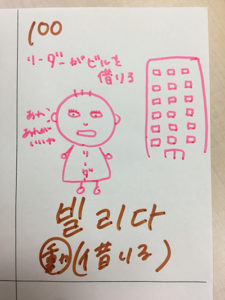 100
リーダーがビルを
借りる
あれ
あれが
いいや
リーダ
빌리다
動(借りる)